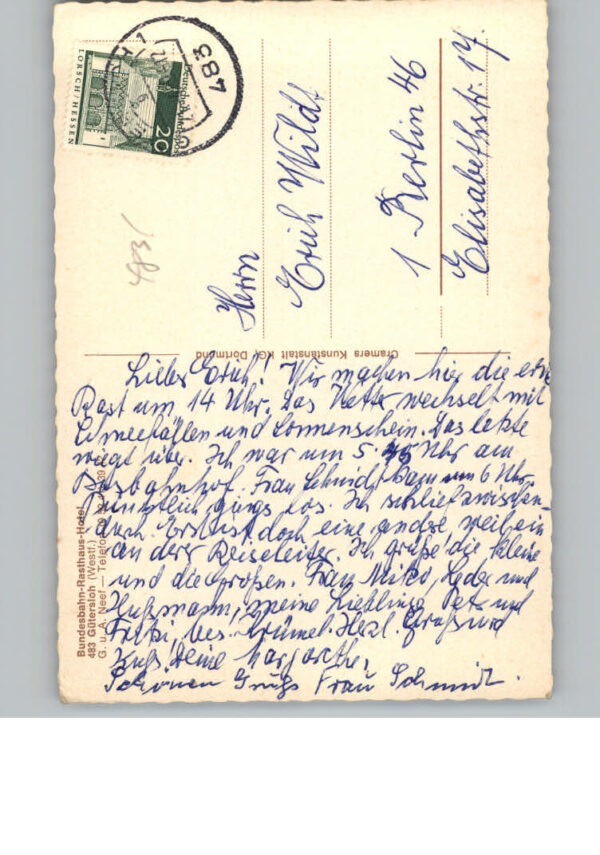 LORSCH/HESSEN
Deutsche Bundespost
20
483
483
Herrn
Erich Wildt
1 Berlin 46
Elisabethstr. 17.
Cramers Kunstanstalt KG, Dortmund
Bundesbahn-Rasthaus-Hotel
483 Gütersloh (Westf.)
G. u. A. Neef — Telefon
Lieber Erich! Wir machen hier die erste
Rast um 14 Uhr. Das Wetter wechselt mit
Schneefällen und Sonnenschein. Das letzte
wiegt über. Ich war um 5.45 Uhr am
Busbahnhof. Frau Schmidt kam um 6 Uhr.
Pünktlich gings los. Ich schlief zwischen-
durch. Erst ist doch eine
an der Reiseleiter. Ich grüße die kleine
und die großen. Frau Leder und
meine Lieblinge und
bes. Krümel. Herzl. Gruß und
Kuß! Deine Margarethe,
Schönen Gruß Frau Schmidt.